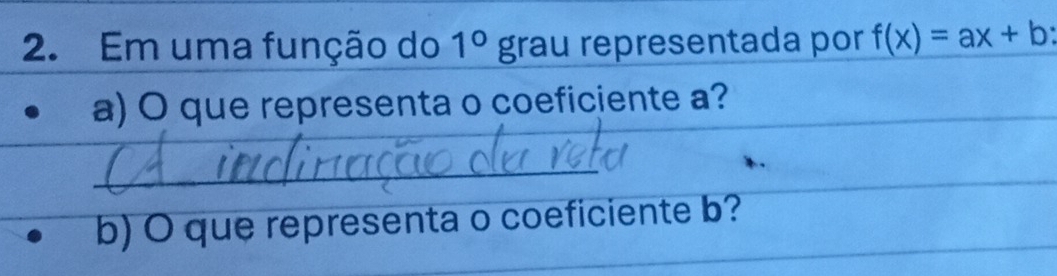 2. Em uma função do 1º grau representada por f(x) = ax + b:
• a) O que representa o coeficiente a?
A inclinação da reta
• b) O que representa o coeficiente b?